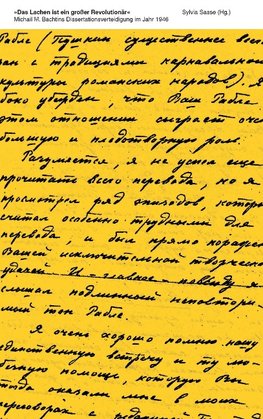 »Das Lachen ist ein großer Revolutionär«
Michail M. Bachtins Dissertationsverteidigung im Jahr 1946
Sylvia Sasse (Hg.)
Рабле (Пушкин существенно всег
зан с традициями карнавальной
культуры романских народов). Я
боко убежден, что Ваш Рабле
этом отношении сыграет оче
большую и плодотворную роль.
Разумеется, я не успел еще
прочитать всего перевода, но я
просмотрел ряд эпизодов, котор
считал особенно трудными для
перевода, и был прямо поражен
Вашей исключительной творческо
удачей. И – главное – повсюду я
слышал подлинный неповтори
мый тон Рабле.
Я очень хорошо помню нашу
единственную встречу и ту лю
безную помощь, которую Вы
тогда оказали мне в моих
переговорах с